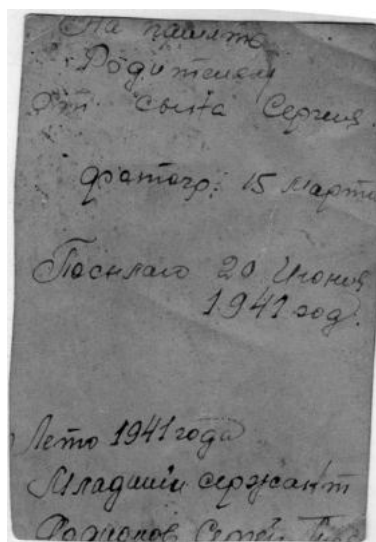 На память
Родителям
От сына Сергея.
фотогр. 15 марта
Посылаю 20 Июня
1941 год.
Лето 1941 года
Младший сержант
Родионов Сергей